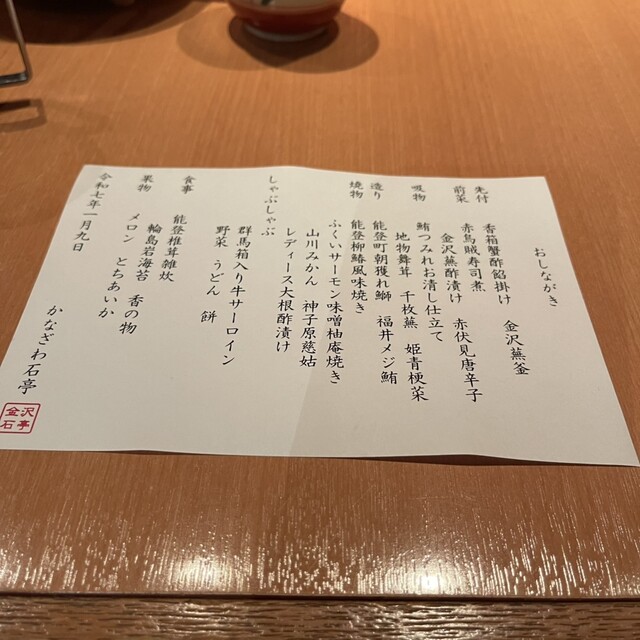 おしながき
先付 香箱蟹酢餡掛け 金沢蕪釜
前菜 赤烏賊寿司煮
金沢蕪酢漬け 赤伏見唐辛子
吸物 鮪つみれお清し仕立て
地物舞茸 千枚蕪 姫青梗菜
造り 能登町朝獲れ鰤 福井メジ鮪
焼物 能登柳鰆風味焼き
ふくいサーモン味噌柚庵焼き
山川みかん 神子原慈姑
レディース大根酢漬け
しゃぶしゃぶ
群馬箱入り牛サーロイン
野菜 うどん 餅
食事 能登椎茸雑炊
輪島岩海苔 香の物
果物 メロン とちあいか
令和七年一月九日
かなざわ石亭
金沢石亭